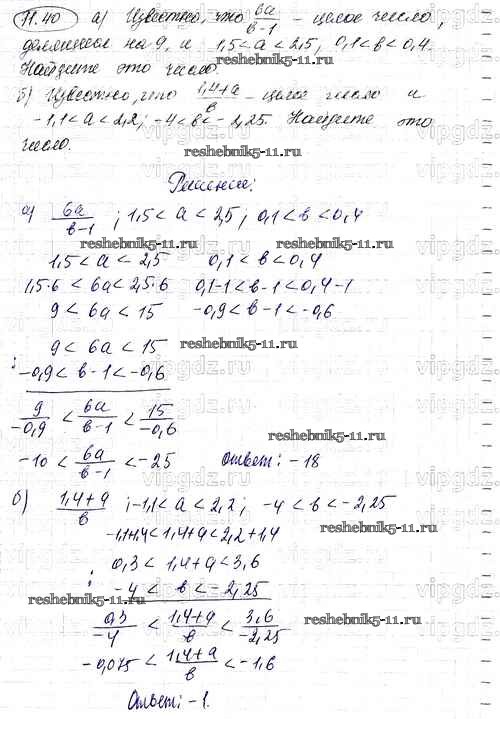 11.40 а) Известно, что 6а/в-1 - целое число,
делящееся на 9, и 1,5<а<2,5, 0,1<в<0,4.
Найдите это число.
б) Известно, что 1,4+а/в - целое число и
-1,1<а<2,2; -4<в<-2,25. Найдите это
число.
reshebnik5-11.ru
Решение:
а) 6а/в-1 ; 1,5<а<2,5; 0,1<в<0,4
reshebnik5-11.ru
1,5<а<2,5 0,1<в<0,4
1,5·6<6а<2,5·6 0,1-1<в-1<0,4-1
9<6а<15 -0,9<в-1<-0,6
reshebnik5-11.ru
9<6а<15
: -0,9<в-1<-0,6
9/-0,9 < 6а/в-1 < 15/-0,6
-10 < 6а/в-1 < -25 Ответ: -18
б) 1,4+а/в ; -1,1<а<2,2; -4<в<-2,25
reshebnik5-11.ru
-1,1+1,4<1,4+а<2,2+1,4
0,3<1,4+а<3,6
: -4<в<-2,25
reshebnik5-11.ru
0,3/-4 < 1,4+а/в < 3,6/-2,25
reshebnik5-11.ru
-0,075 < 1,4+а/в < -1,6
Ответ: -1.
vipgdz.ru